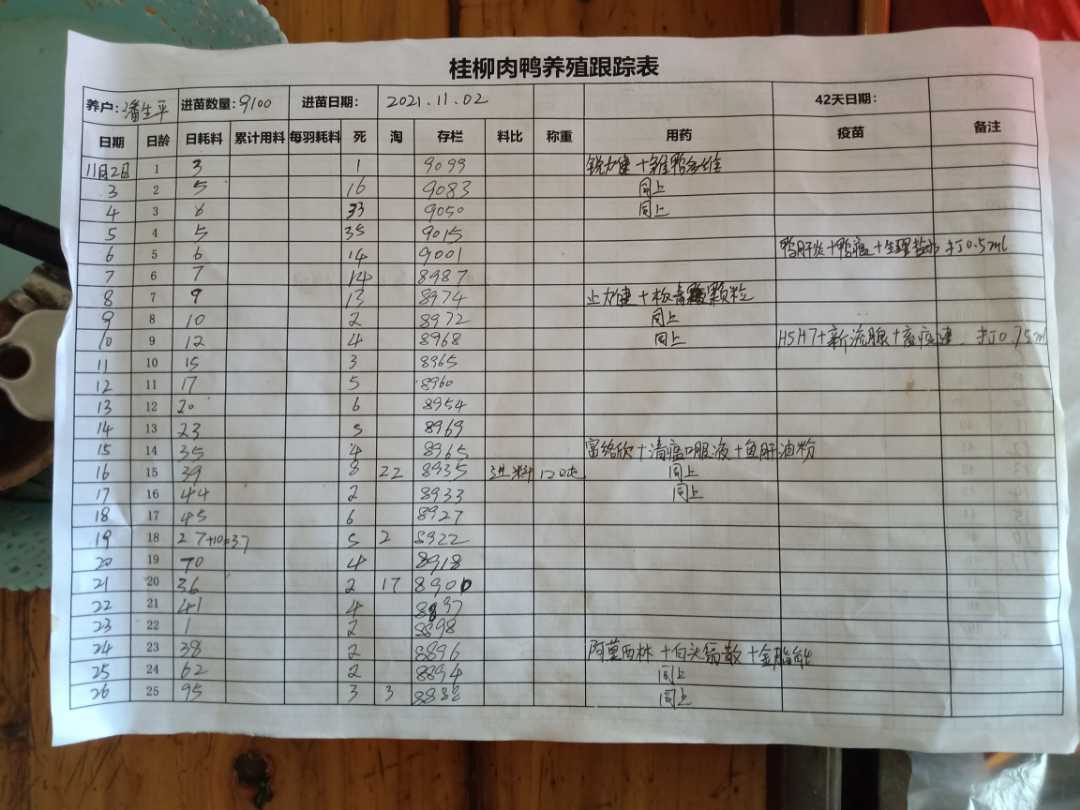 桂柳肉鸭养殖跟踪表
养户:潘生平 进苗数量:9100 进苗日期: 2021.11.02 42天日期:
日期 日龄 日耗料 累计用料 每羽耗料 死 淘 存栏 料比 称重 用药 疫苗 备注
11月2日 1 3 1 9099 锐力健+雏鸭多维
3 2 5 16 9083 同上
4 3 6 33 9050 同上
5 4 5 35 9015
6 5 6 14 9001 鸭肝炎+鸭瘟+生理盐水 打0.5ml
7 6 7 14 8987
8 7 9 13 8974 止力健+板青颗粒
9 8 10 2 8972 同上
10 9 12 4 8968 同上 H5H7+新流腺+ 打0.75ml
11 10 15 3 8965
12 11 17 5 8960
13 12 20 6 8954
14 13 23 5 8969
15 14 35 4 8965 富络欣+清瘟口服液+鱼肝油粉
16 15 39 8 22 8935 进料 120包 同上
17 16 44 2 8933 同上
18 17 45 6 8927
19 18 27+10=37 5 2 8922
20 19 70 4 8918
21 20 36 2 17 8900
22 21 41 4 8897
23 22 1 2 8898
24 23 38 2 8896 阿莫西林+白头翁散+
25 24 62 2 8894 同上
26 25 95 3 3 8888 同上